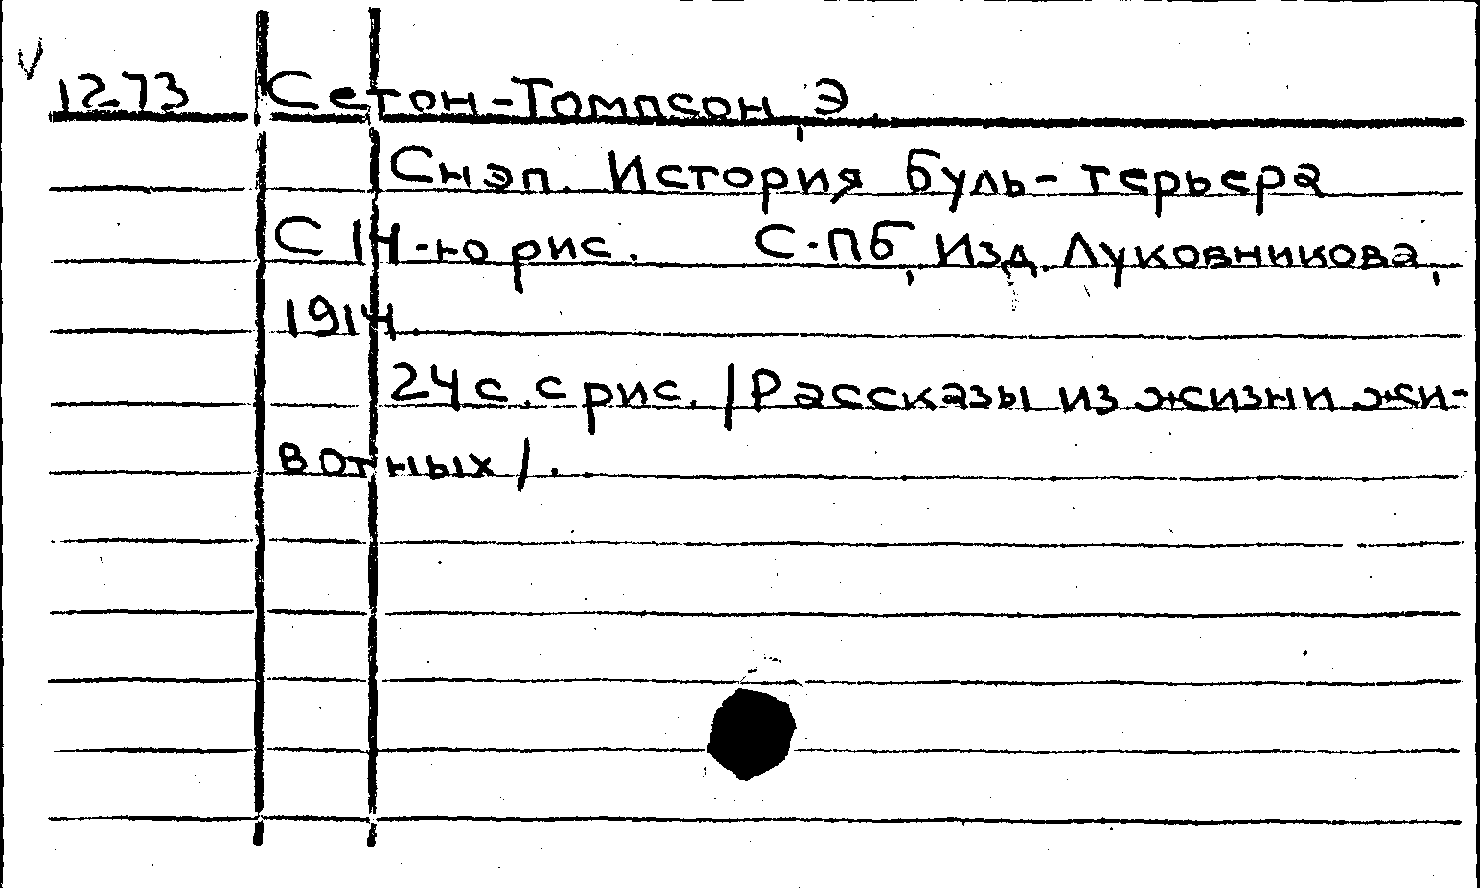 V
1273 Сетон-Томпсон, Э.
Снэп. История буль-терьера
С 14-ю рис. С-Пб, Изд. Луковникова,
1914.
24 с. с рис. /Рассказы из жизни жи-
вотных/.